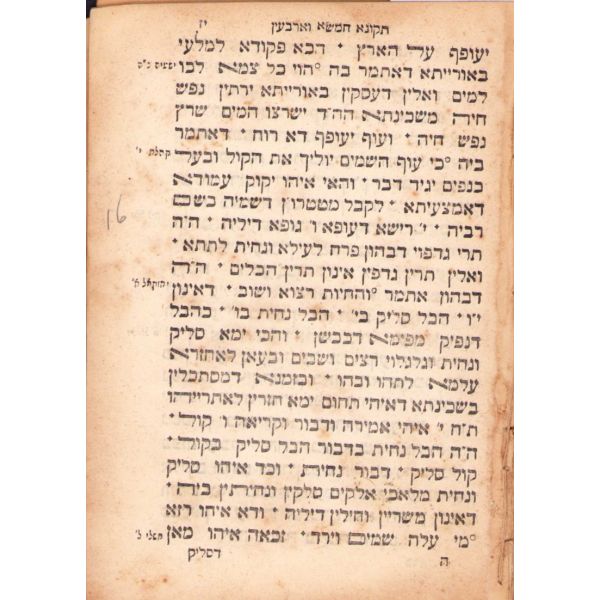 תקונא חמשא וארבעין יז
יעופף על הארץ · הבא פקודא למלעי
באורייתא דאתמר בה °הוי כל צמא לכו ישעיה נ"ה
למים ואלין דעסקין באורייתא ירתין נפש
חיה משכינתא הה"ד ישרצו המים שרץ
נפש חיה · ועוף יעופף דא רוח · דאתמר
ביה °כי עוף השמים יוליך את הקול ובעל קהלת י'
כנפים יגיד דבר · והאי איהו יקוק עמודא
דאמצעיתא · לקבל מטטרו"ן דשמיה כשם
רביה · י' רישא דעופא ו' גופא דיליה · ה"ה
תרי גדפוי דבהון פרח לעילא ונחית לתתא ·
ואלין תרין גדפין אינון תרין הבלים · ה"ה
דבהון אתמר °והחיות רצוא ושוב · דאינון יחזקאל א'
י"ו · הבל סליק בי' · הבל נחית בו' · כהבל
דנפיק מפומא דכבשן · והכי ימא סליק
ונחית וגלגלוי רצים ושבים ובעאן לאחזרא
עלמא לתהו ובהו · ובזמנא דמסתכלין
בשכינתא דאיהי תחום ימא חזרין לאחרייהו
ת"ח י' איהי אמירה ודבור וקריאה ו' קול ·
ה"ה הבל נחית בדבור הבל סליק בקול ·
קול סליק · דבור נחית · וכד איהו סליק
ונחית מלאכי אלקים סלקין ונחיתין ביה ·
דאינון משריין וחיילין דיליה · ודא איהו רזא
°מי עלה שמים וירד · זכאה איהו מאן משלי ל'
ה דסליק
16